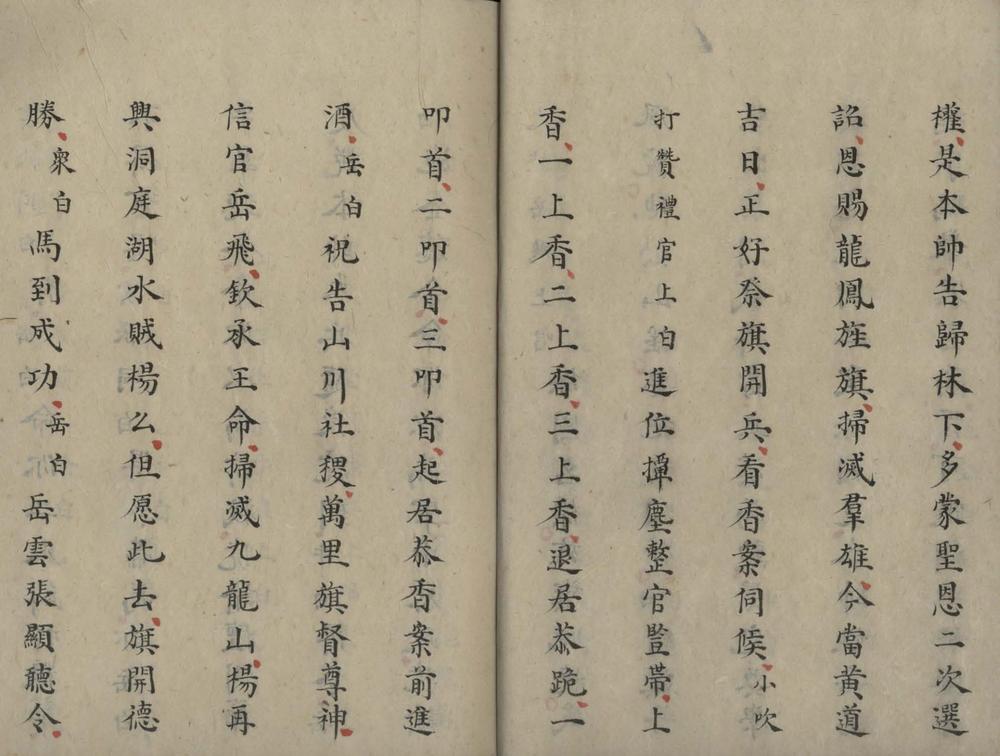 權是本帥告歸林下多蒙聖恩二次選
詔恩賜龍鳳旌旗掃滅羣雄今當黄道
吉日正好祭旗開兵看香案伺候小吹
打贊禮官上白進位撣塵整官豎帶上
香一上香二上香三上香退居恭跪一
叩首二叩首三叩首起居恭香案前進
酒岳白祝告山川社稷萬里旗督尊神
信官岳飛欽承王命掃滅九龍山楊再
興洞庭湖水賊楊么但愿此去旗開德
勝衆白馬到成功岳白岳雲張顯聽令